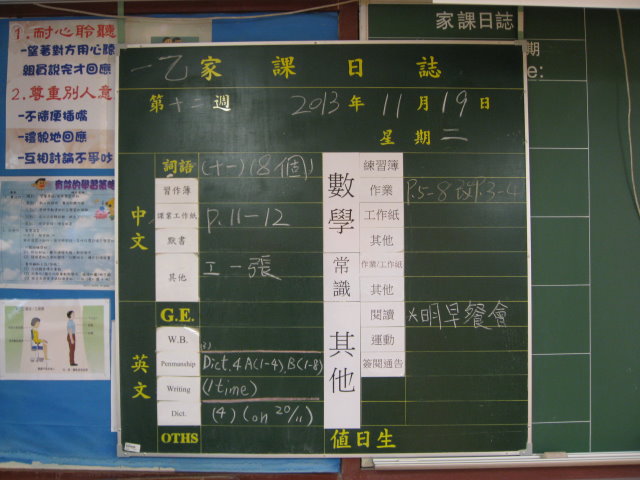 1.耐心聆聽
-望著對方用心聽
組員說完才回應
2.尊重別人意
-不隨便插嘴
-禮貌地回應
-互相討論不爭吵
家課日誌
期
e:
一乙家課日誌
第十二週 2013年11月19日
星期二
中文
詞語 (十一)(8個)
習作簿
課業工作紙 P.11-12
默書
其他 工一張
英文
G.E.
W.B.
Penmanship Dict.4 A(1-4), B(1-8)
Writing (1 time)
Dict. (4) (on 20/11)
OTHS
數學
練習簿
作業 P.5-8
工作紙
其他
常識
作業/工作紙
其他
其他
閱讀 *明早餐會
運動
簽閱通告
值日生